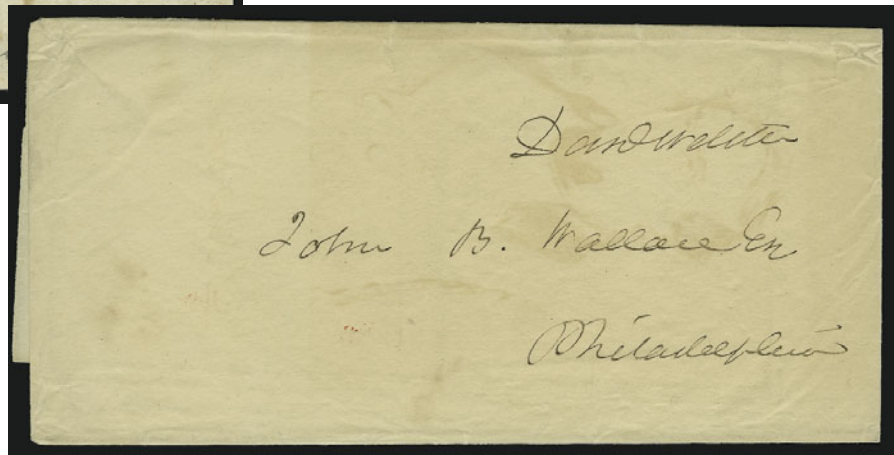 Danl Webster
John B. Wallace Esq
Philadelphia